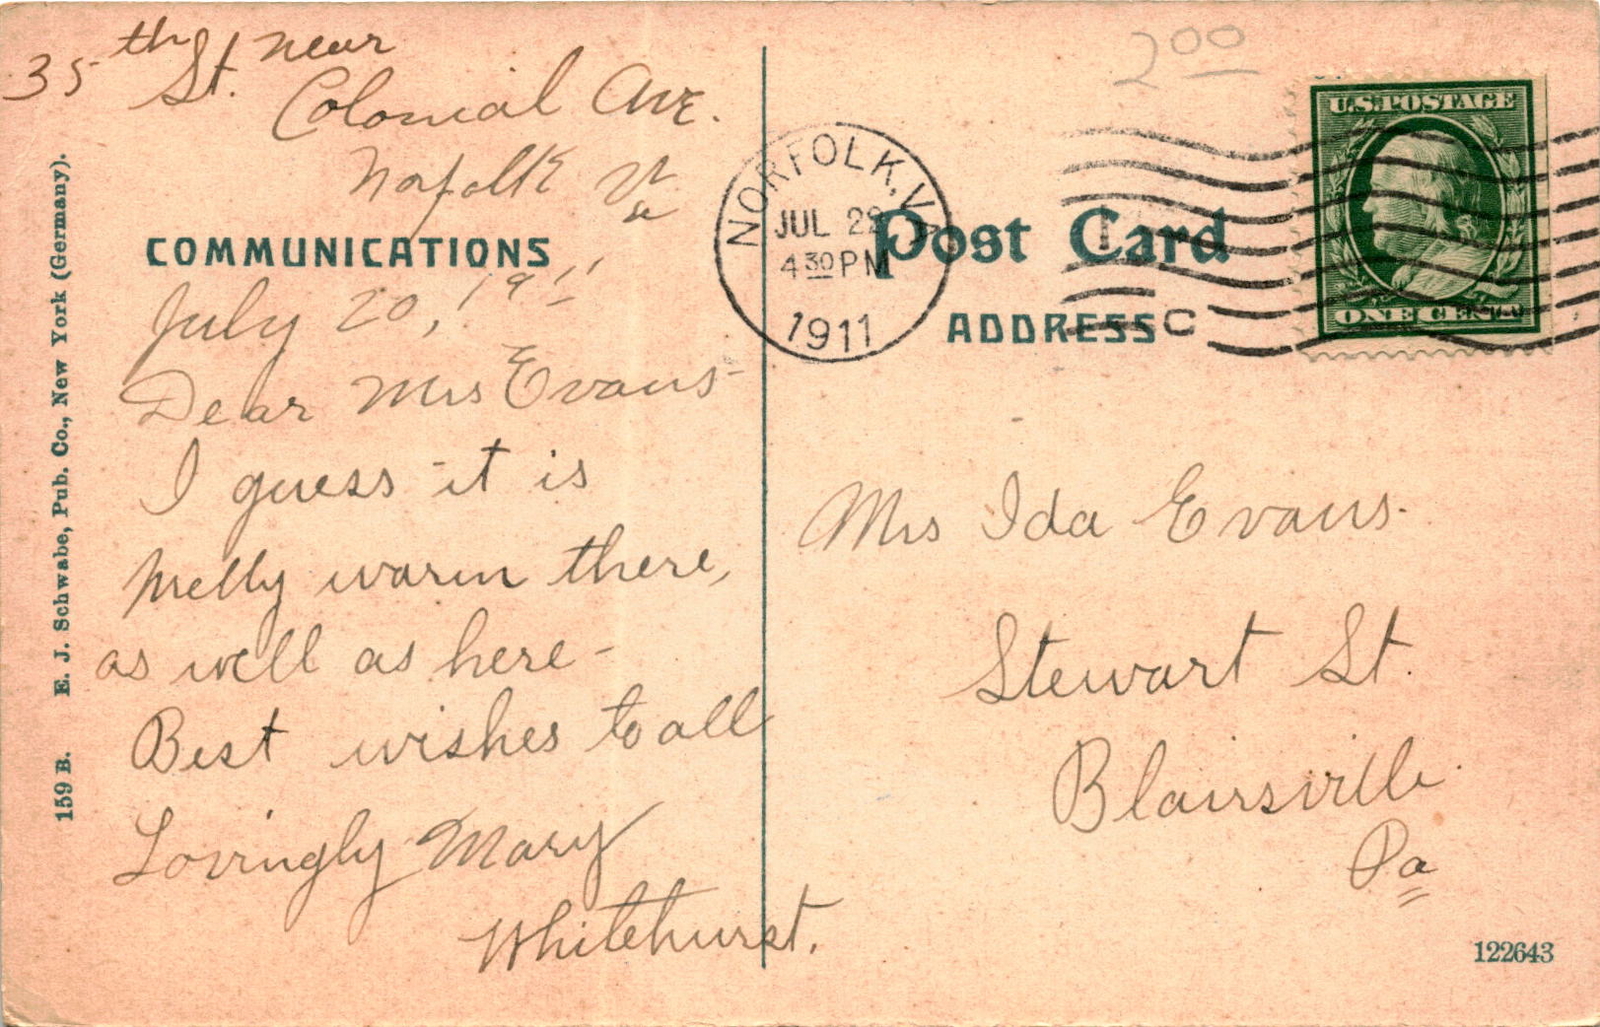 35th St. near
Colonial Ave.
Norfolk Va
COMMUNICATIONS
July 20, 1911
Dear Mrs Evans-
I guess it is
melly warm there,
as well as here-
Best wishes to all
Lovingly Mary
Whitehurst.
159 B. E. J. Schwabe, Pub. Co., New York (Germany).
2 00
NORFOLK, VA
JUL 22
4 30 PM
1911
C
U.S. POSTAGE
ONE CENT
Post Card
ADDRESS
Mrs Ida Evans.
Stewart St.
Blairsville
Pa
122643